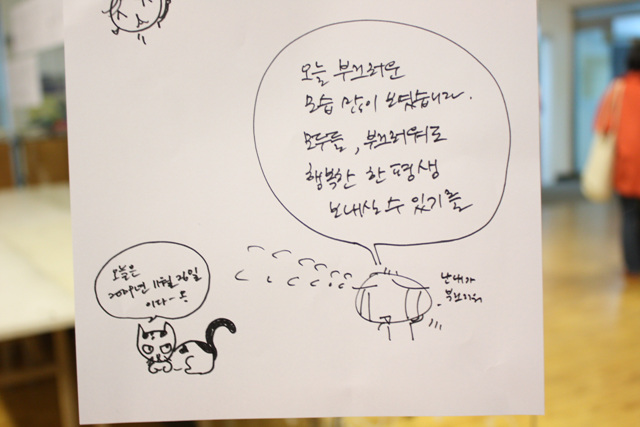 오늘 부끄러운
모습 많이 보였습니다.
모두들, 부끄러워도
행복한 한평생
보내실 수 있기를
난 내가
부끄러워
오늘은
11월 26일
이다-